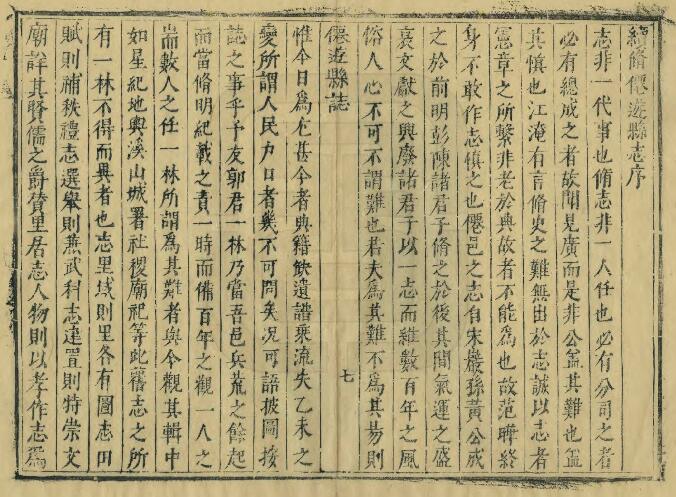 續脩僊遊縣志序
志非一代事也脩志非一人任也必有分司之者
必有總成之者故聞見廣而是非公盖其難也盖
其慎也江淹有言脩史之難無出於志誠以志者
憲章之所繫非老於典故者不能為也故范曄終
身不敢作志慎之也僊邑之志自宋巖孫黃公成
之於前明彭陳諸君子脩之於後其間氣運之盛
衰文獻之興廢諸君子以一志而維數百年之風
俗人心不可不謂難也若夫為其難不為其易則
僊遊縣誌
七
惟今日為尤甚今者典籍缺遺譜乘流失乙未之
變所謂人民力口者幾不可問矣况可語披圖按
誌之事乎予友郭君一林乃當吾邑兵荒之餘起
而當脩明紀載之責一時而備百年之觀一人之
耑藪人之任一林所謂為其難者與今觀其輯中
如星紀地輿溪山城署社稷廟祀等此舊志之所
有一林不得而異者也志里域則里各有圖志田
賦則補秩禮志選舉則蕪武科志建置則特崇文
廟詳其賢儒之爵賛里居志人物則以孝作志為